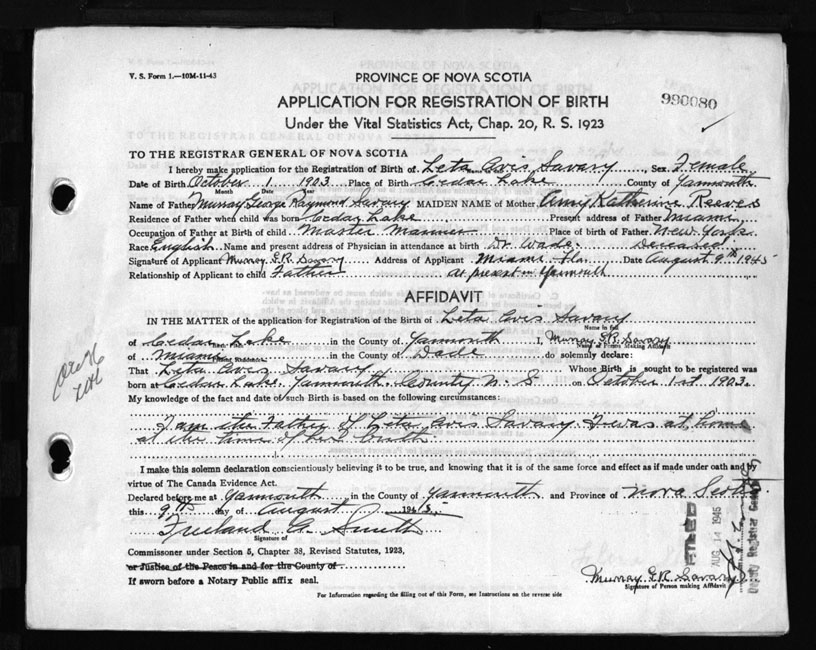 V. S. Form 1.—10M-11-43
PROVINCE OF NOVA SCOTIA
APPLICATION FOR REGISTRATION OF BIRTH
990080
Under the Vital Statistics Act, Chap. 20, R. S. 1923
TO THE REGISTRAR GENERAL OF NOVA SCOTIA
I hereby make application for the Registration of Birth of Leta Avis Savary, Sex Female
Date of Birth October 1 1903 Place of Birth Cedar Lake County of Yarmouth
Month Date Year
Name of Father Murray George Raymond Savary MAIDEN NAME of Mother Amy Katherine Reeves
Residence of Father when child was born Cedar Lake Present address of Father Miami
Occupation of Father at Birth of child Master Mariner Place of birth of Father New York
Race English Name and present address of Physician in attendance at birth Dr Wade Deceased
Signature of Applicant Murray G.R. Savary Address of Applicant Miami Fla. Date August 9th 1945
Relationship of Applicant to child Father at present in Yarmouth
AFFIDAVIT
IN THE MATTER of the application for Registration of the Birth of Leta Avis Savary
Name in full
of Cedar Lake in the County of Yarmouth I, Murray G.R. Savary
Name of Person Making Affidavit
of Miami in the County of Dade do solemnly declare:
That Leta Avis Savary Whose Birth is sought to be registered was
born at Cedar Lake Yarmouth County N. S on October 1st 1903.
My knowledge of the fact and date of such Birth is based on the following circumstances:
I am the Father of Leta Avis Savary. I was at home
at the time of her birth.
I make this solemn declaration conscientiously believing it to be true, and knowing that it is of the same force and effect as if made under oath and by
virtue of The Canada Evidence Act.
Declared before me at Yarmouth in the County of Yarmouth and Province of Nova Scotia
this 9th day of August 1945
Freeland A. Smith
Signature of
Commissioner under Section 5, Chapter 38, Revised Statutes, 1923,
or Justice of the Peace in and for the County of
If sworn before a Notary Public affix seal.
Murray G.R. Savary
Signature of Person making Affidavit
For Information regarding the filling out of this Form, see Instructions on the reverse side
FILED
AUG 14 1945
Deputy Registrar General